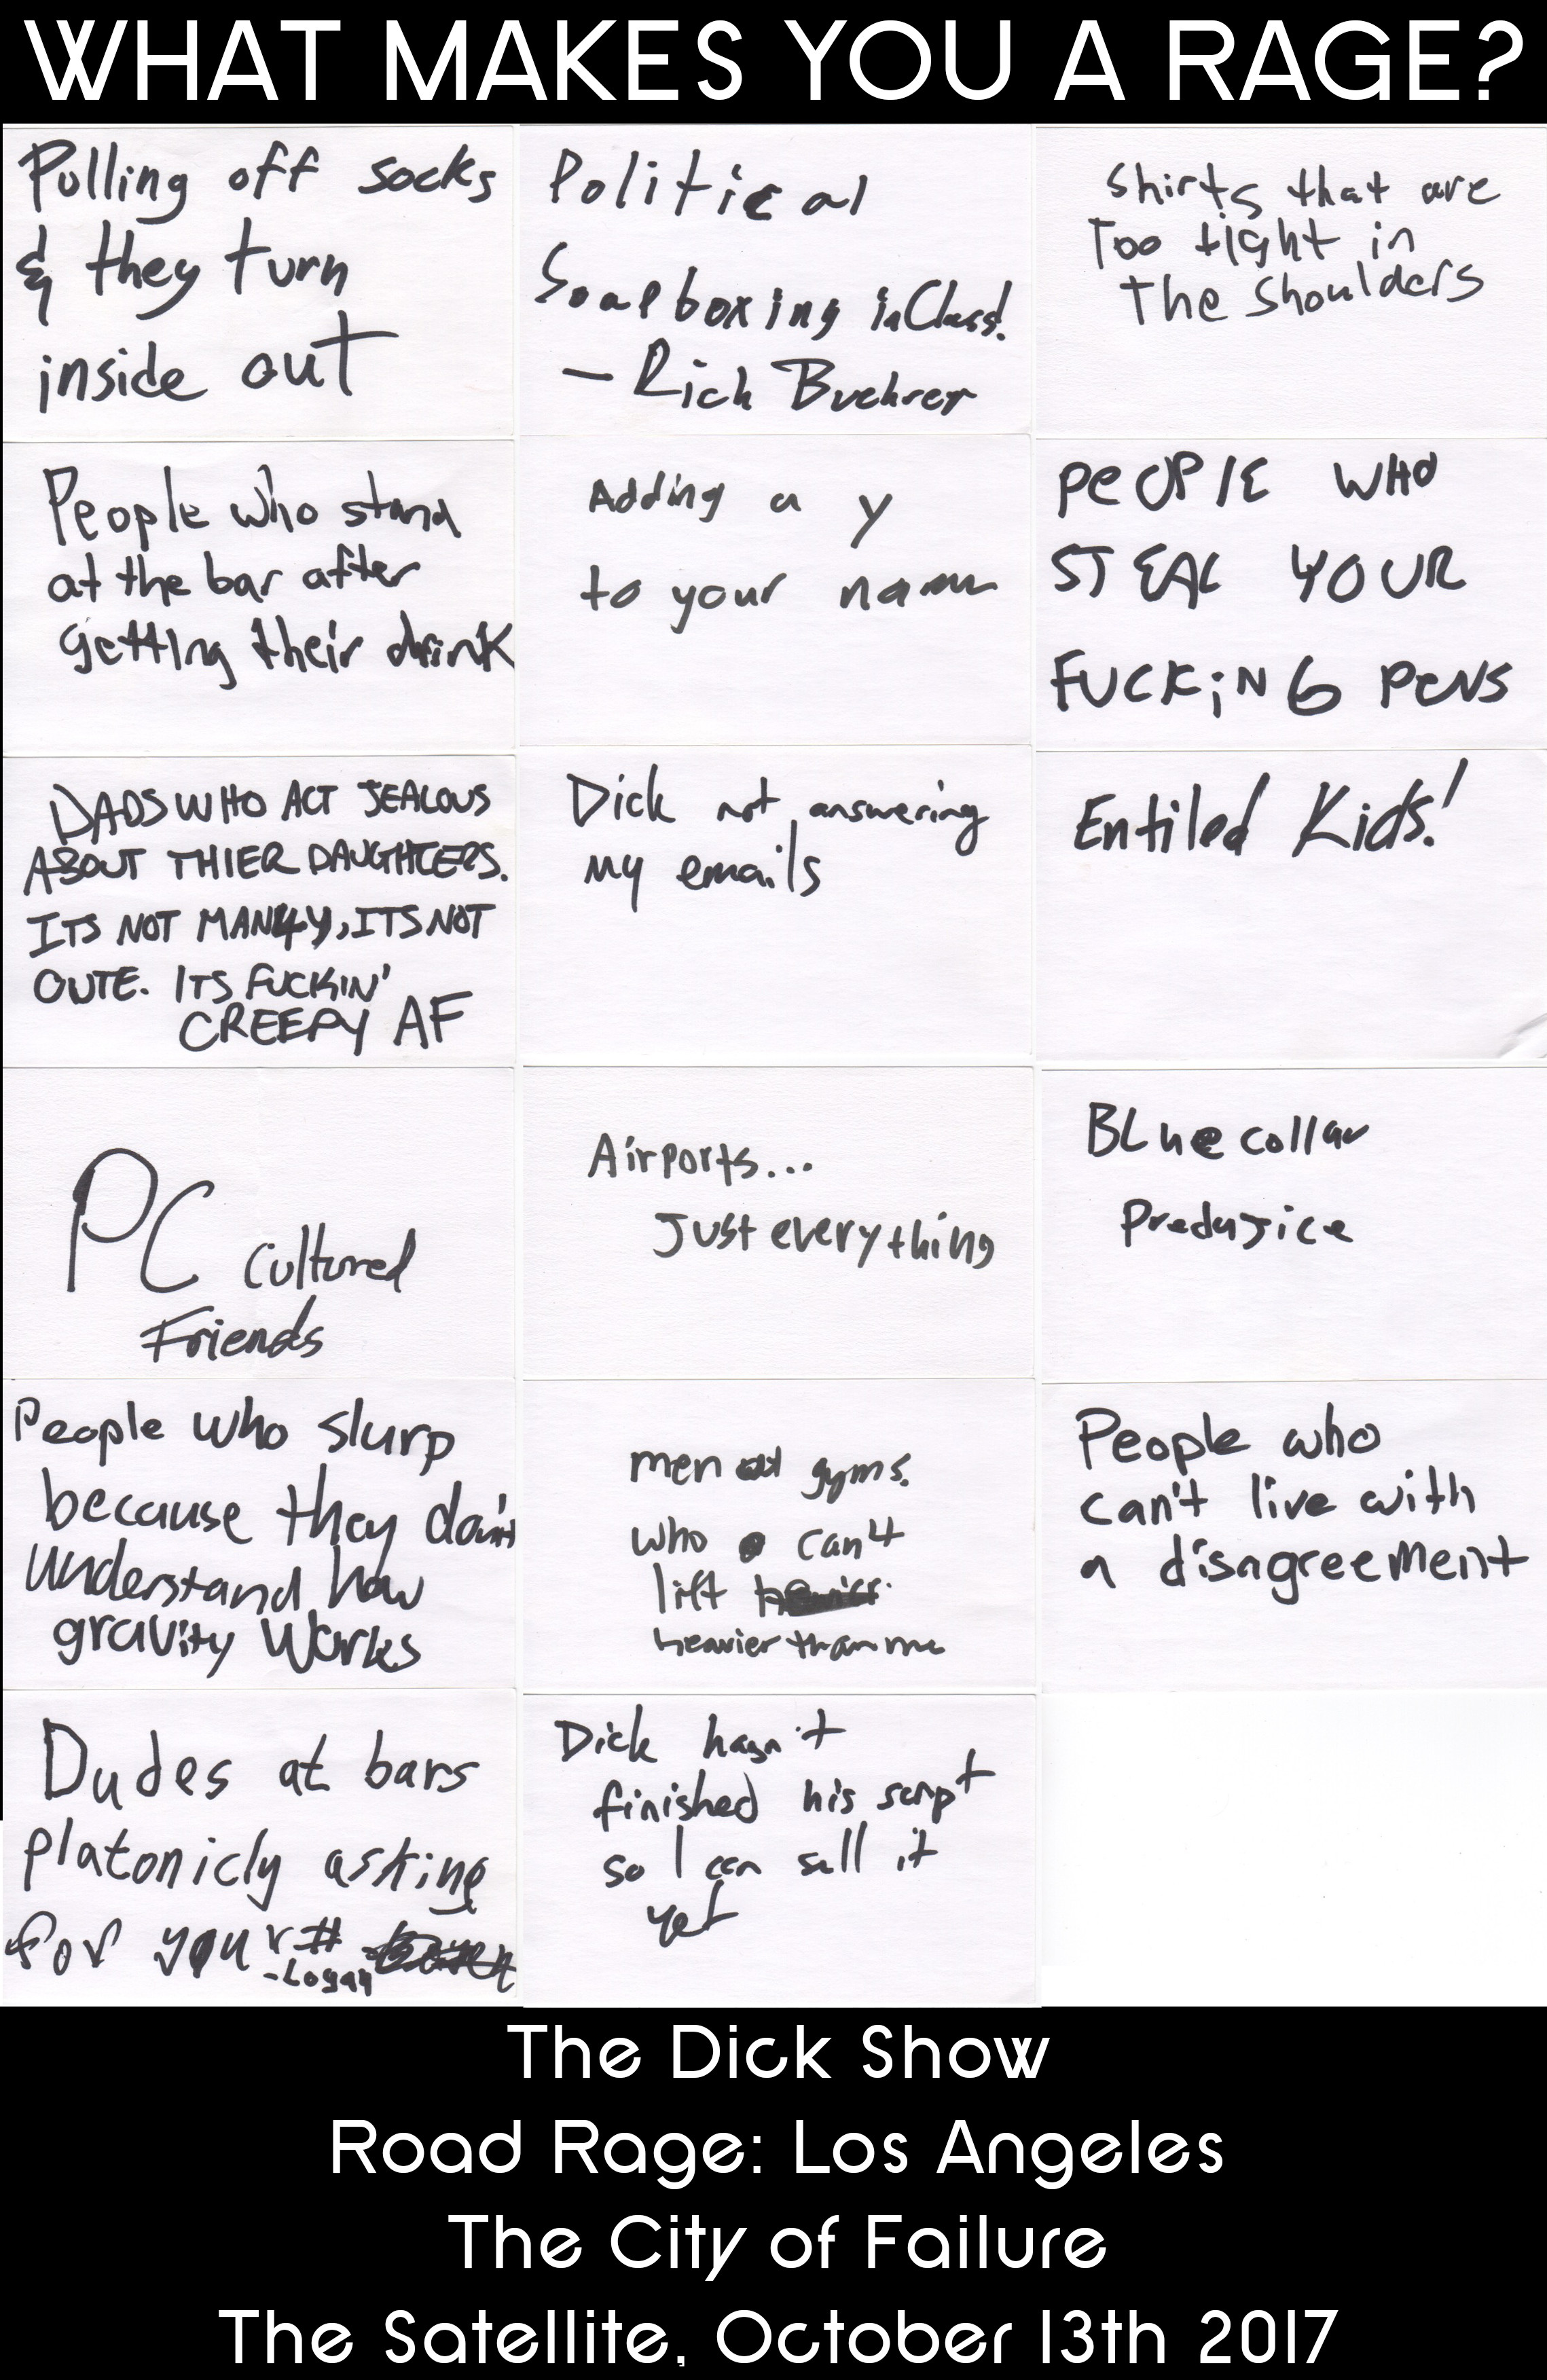 WHAT MAKES YOU A RAGE?
Pulling off socks
& they turn
inside out
Political
Soapboxing in Class!
— Rich Buehrer
Shirts that are
Too tight in
The Shoulders
People who stand
at the bar after
getting their drink
Adding a y
to your name
PEOPLE WHO
STEAL YOUR
FUCKING PENS
DADS WHO ACT JEALOUS
ABOUT THIER DAUGHTERS.
ITS NOT MANLY, ITS NOT
CUTE. ITS FUCKIN'
CREEPY AF
Dick not answering
my emails
Entiled Kids!
PC Cultured
Friends
Airports...
Just everything
BLue collar
Predujice
People who slurp
because they don't
understand how
gravity works
men at gyms.
who can't
lift
heavier than me
People who
can't live with
a disagreement
Dudes at bars
platonicly asking
for your #
-Logan
Dick hasn't
finished his script
so I can sell it
yet
The Dick Show
Road Rage: Los Angeles
The City of Failure
The Satellite, October 13th 2017